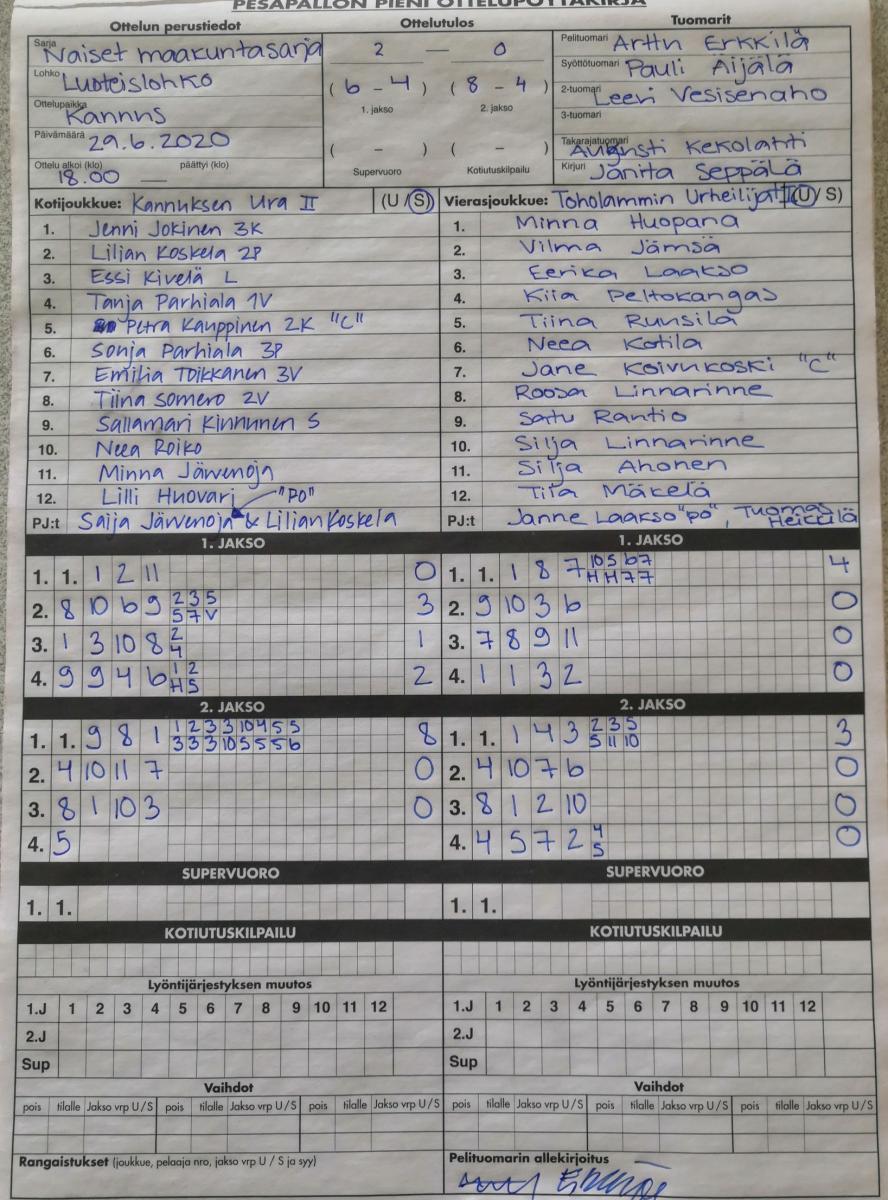 PESÄPALLON PIENI OTTELUPÖYTÄKIRJA
Ottelun perustiedot Ottelutulos Tuomarit
Sarja Naiset maakuntasarja 2 — 0 Pelituomari Arttu Erkkilä
Lohko Luoteislohko Syöttötuomari Pauli Äijälä
Ottelupaikka Kannus (6 - 4) (8 - 4) 2-tuomari Leevi Vesisenaho
1. jakso 2. jakso 3-tuomari
Päivämäärä 29.6.2020 Takarajatuomari Augusti Kekolahti
Ottelu alkoi (klo) 18.00 päättyi (klo) ( - ) ( - ) Kirjuri Janita Seppälä
Supervuoro Kotiutuskilpailu
Kotijoukkue: Kannuksen Ura II (U / S) Vierasjoukkue: Toholammin Urheilijat II (U / S)
1. Jenni Jokinen 3K 1. Minna Huopana
2. Lilian Koskela 2P 2. Vilma Jämsä
3. Essi Kivelä L 3. Eerika Laakso
4. Tanja Parhiala 1V 4. Kiia Peltokangas
5. Petra Kauppinen 2K "C" 5. Tiina Ruusila
6. Sonja Parhiala 3P 6. Neea Kotila
7. Emilia Toikkanen 3V 7. Jane Koivukoski "C"
8. Tiina Somero 2V 8. Roosa Linnarinne
9. Sallamari Kinnunen S 9. Satu Rantio
10. Neea Roiko 10. Silja Linnarinne
11. Minna Järvenoja 11. Silja Ahonen
12. Lilli Huovari "PO" 12. Tiia Mäkelä
PJ:t Saija Järvenoja & Lilian Koskela PJ:t Janne Laakso "PO", Tuomas Heikkilä
1. JAKSO 1. JAKSO
1. 1. 1 2 11 0 1. 1. 1 8 7 10 5 6 7 4
H H 7 7
2. 8 10 6 9 2 3 5 3 2. 9 10 3 6 0
5 7 V
3. 1 3 10 8 2 1 3. 7 8 9 11 0
4
4. 9 9 4 6 1 2 2 4. 1 1 3 2 0
H 5
2. JAKSO 2. JAKSO
1. 1. 9 8 1 1 2 3 3 10 4 5 5 8 1. 1. 1 4 3 2 3 5 3
3 3 3 10 5 5 5 6 5 11 10
2. 4 10 11 7 0 2. 4 10 7 6 0
3. 8 1 10 3 0 3. 8 1 2 10 0
4. 5 4. 4 5 7 2 4 0
5
SUPERVUORO SUPERVUORO
1. 1. 1. 1.
KOTIUTUSKILPAILU KOTIUTUSKILPAILU
Lyöntijärjestyksen muutos Lyöntijärjestyksen muutos
1.J 1 2 3 4 5 6 7 8 9 10 11 12 1.J 1 2 3 4 5 6 7 8 9 10 11 12
2.J 2.J
Sup Sup
Vaihdot Vaihdot
pois tilalle Jakso vrp U / S pois tilalle Jakso vrp U / S pois tilalle Jakso vrp U / S pois tilalle Jakso vrp U / S pois tilalle Jakso vrp U / S pois tilalle Jakso vrp U / S
Rangaistukset (joukkue, pelaaja nro, jakso vrp U / S ja syy) Pelituomarin allekirjoitus